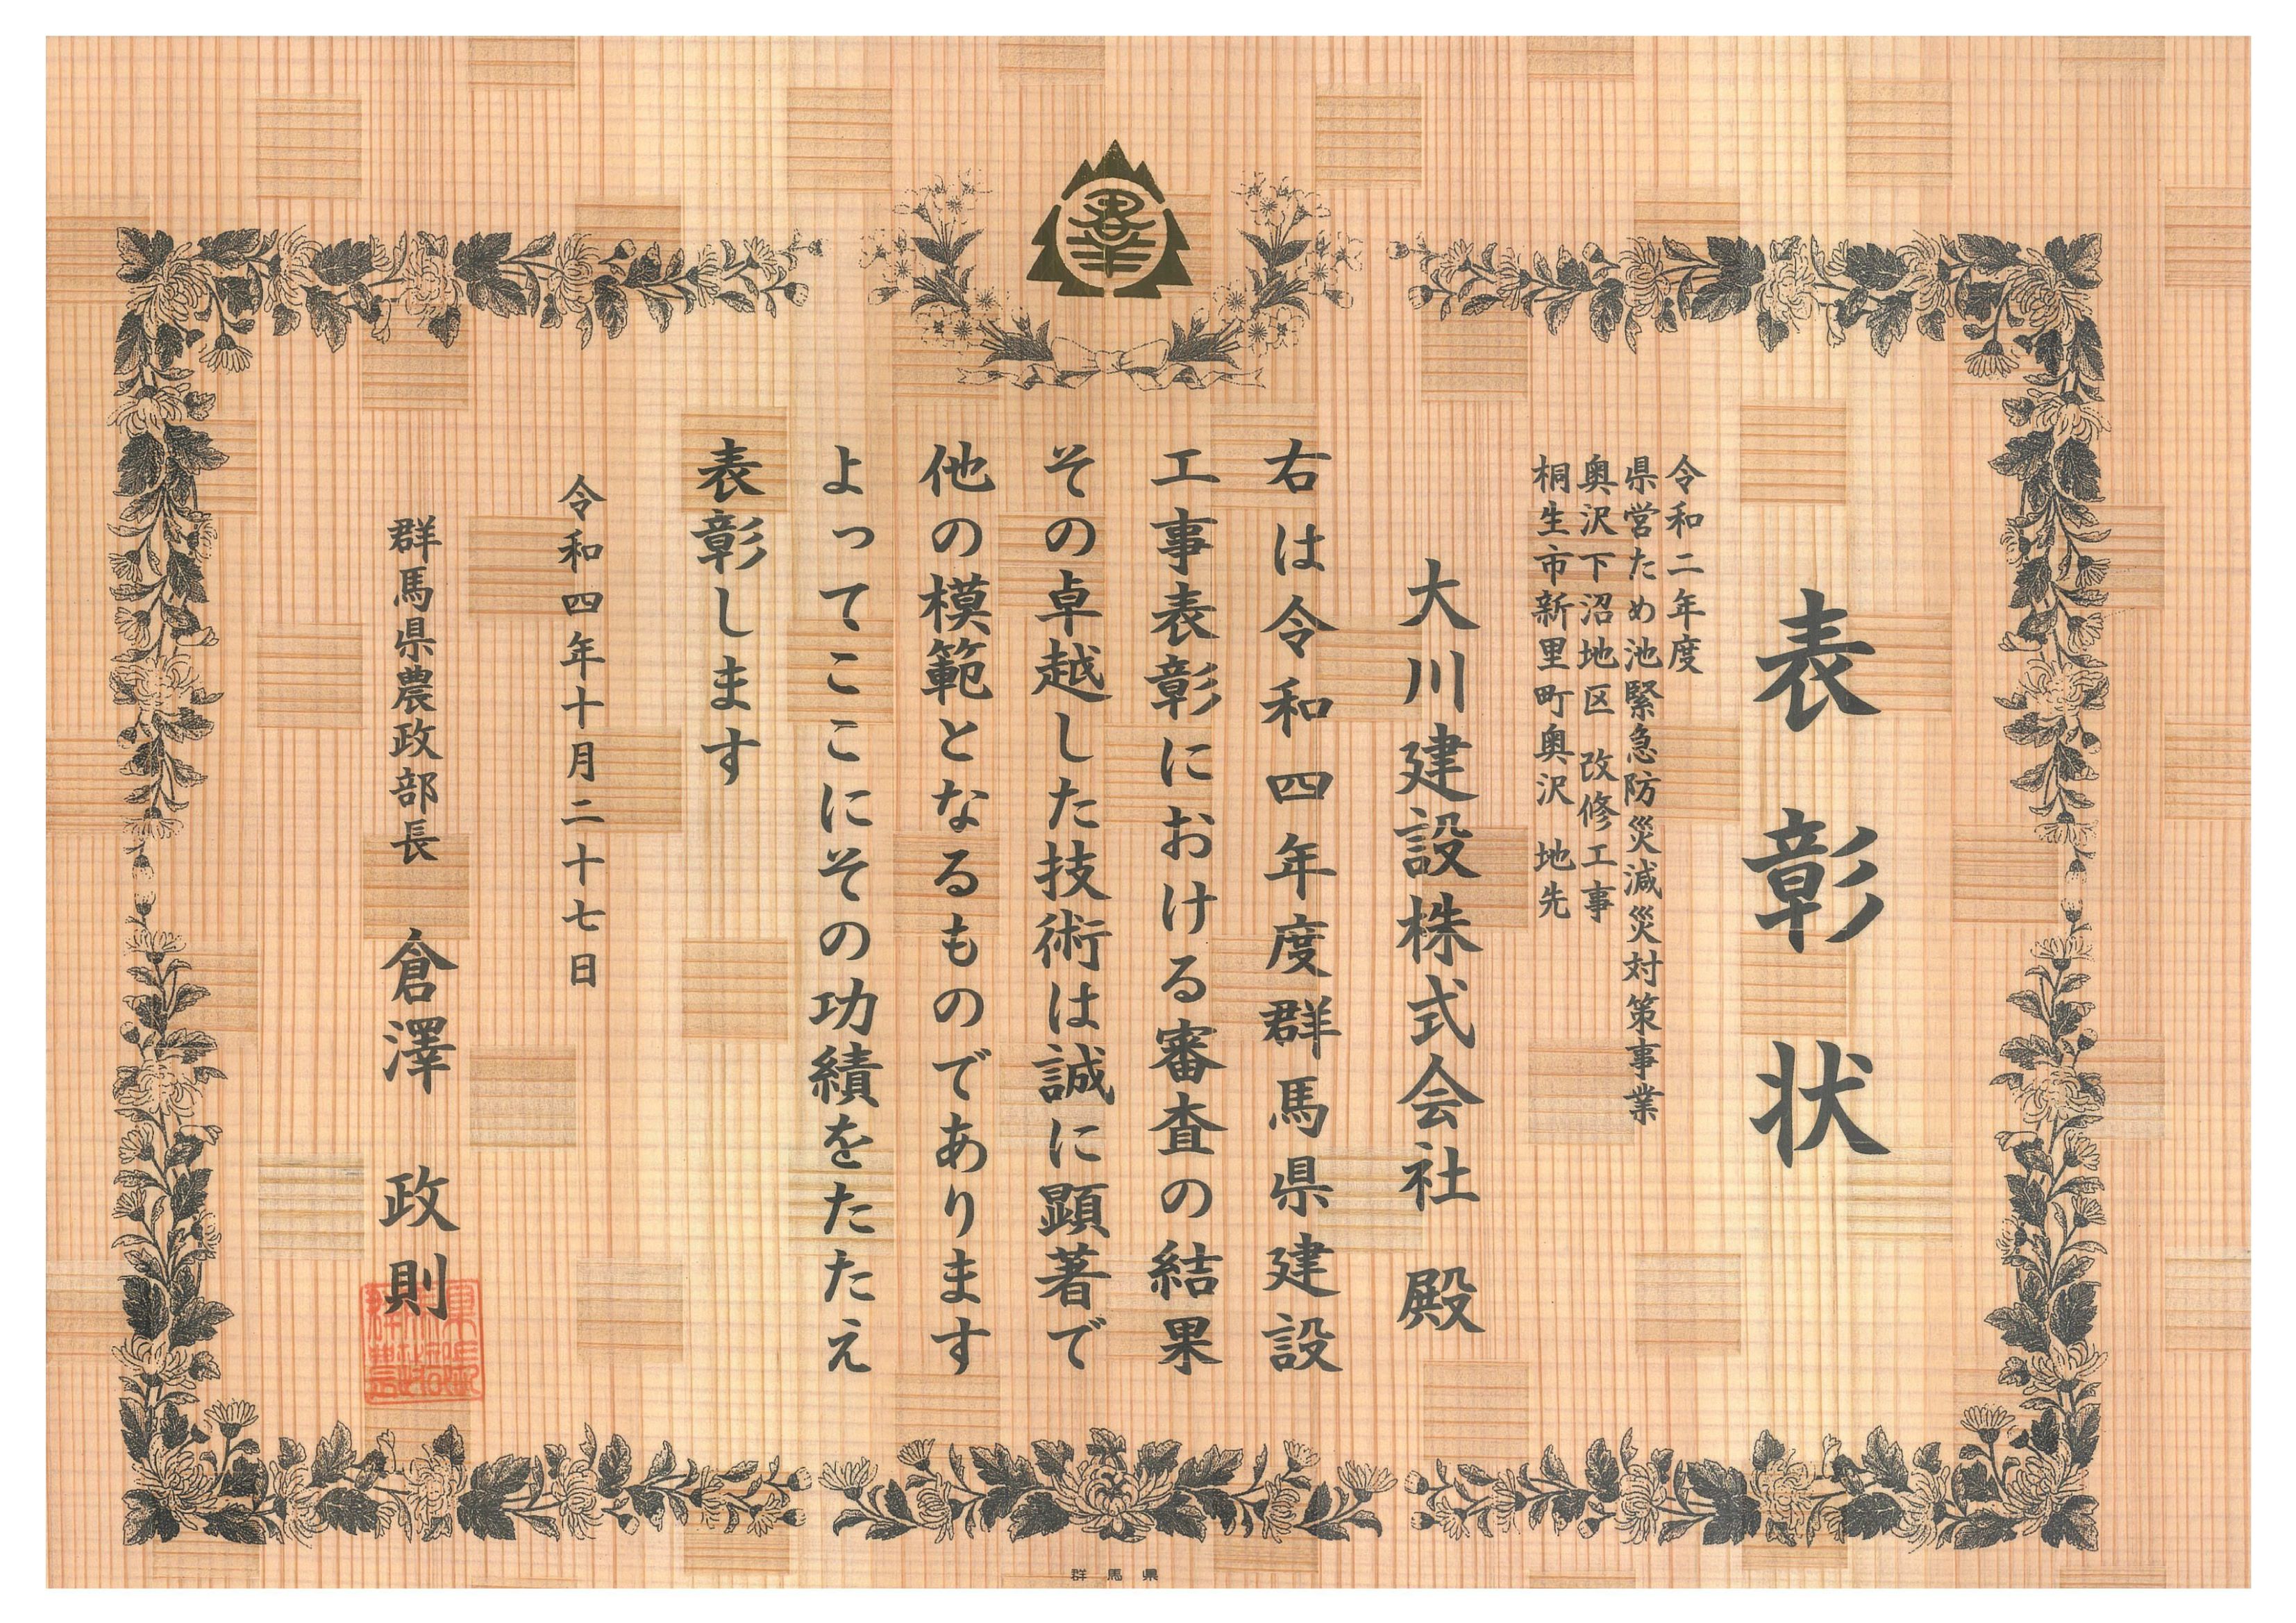 表彰状
令和二年度
県営ため池緊急防災減災対策事業
奥沢下沼地区　改修工事
桐生市新里町奥沢　地先
大川建設株式会社　殿
右は令和四年度群馬県建設
工事表彰における審査の結果
その卓越した技術は誠に顕著で
他の模範となるものであります
よってここにその功績をたたえ
表彰します
令和四年十月二十七日
群馬県農政部長　倉澤　政則
群馬県